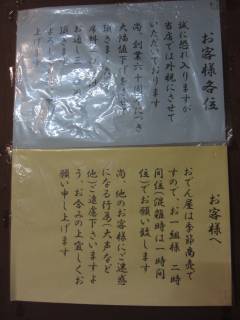 お客様各位
誠に恐れ入りますが
当店では外税にさせて
いただいております
尚、創業六十周年につき
大幅値下げ
頂きま
お通し三
上げます
お客様へ
おでん屋は季節商売で
すので、お一組様 二時
間位(混雑時は一時間
位)でお願い致します
尚、他のお客様にご迷惑
になる行為(大声など
他)ご遠慮下さいますよ
う、お含みの上宜しくお
願い申し上げます